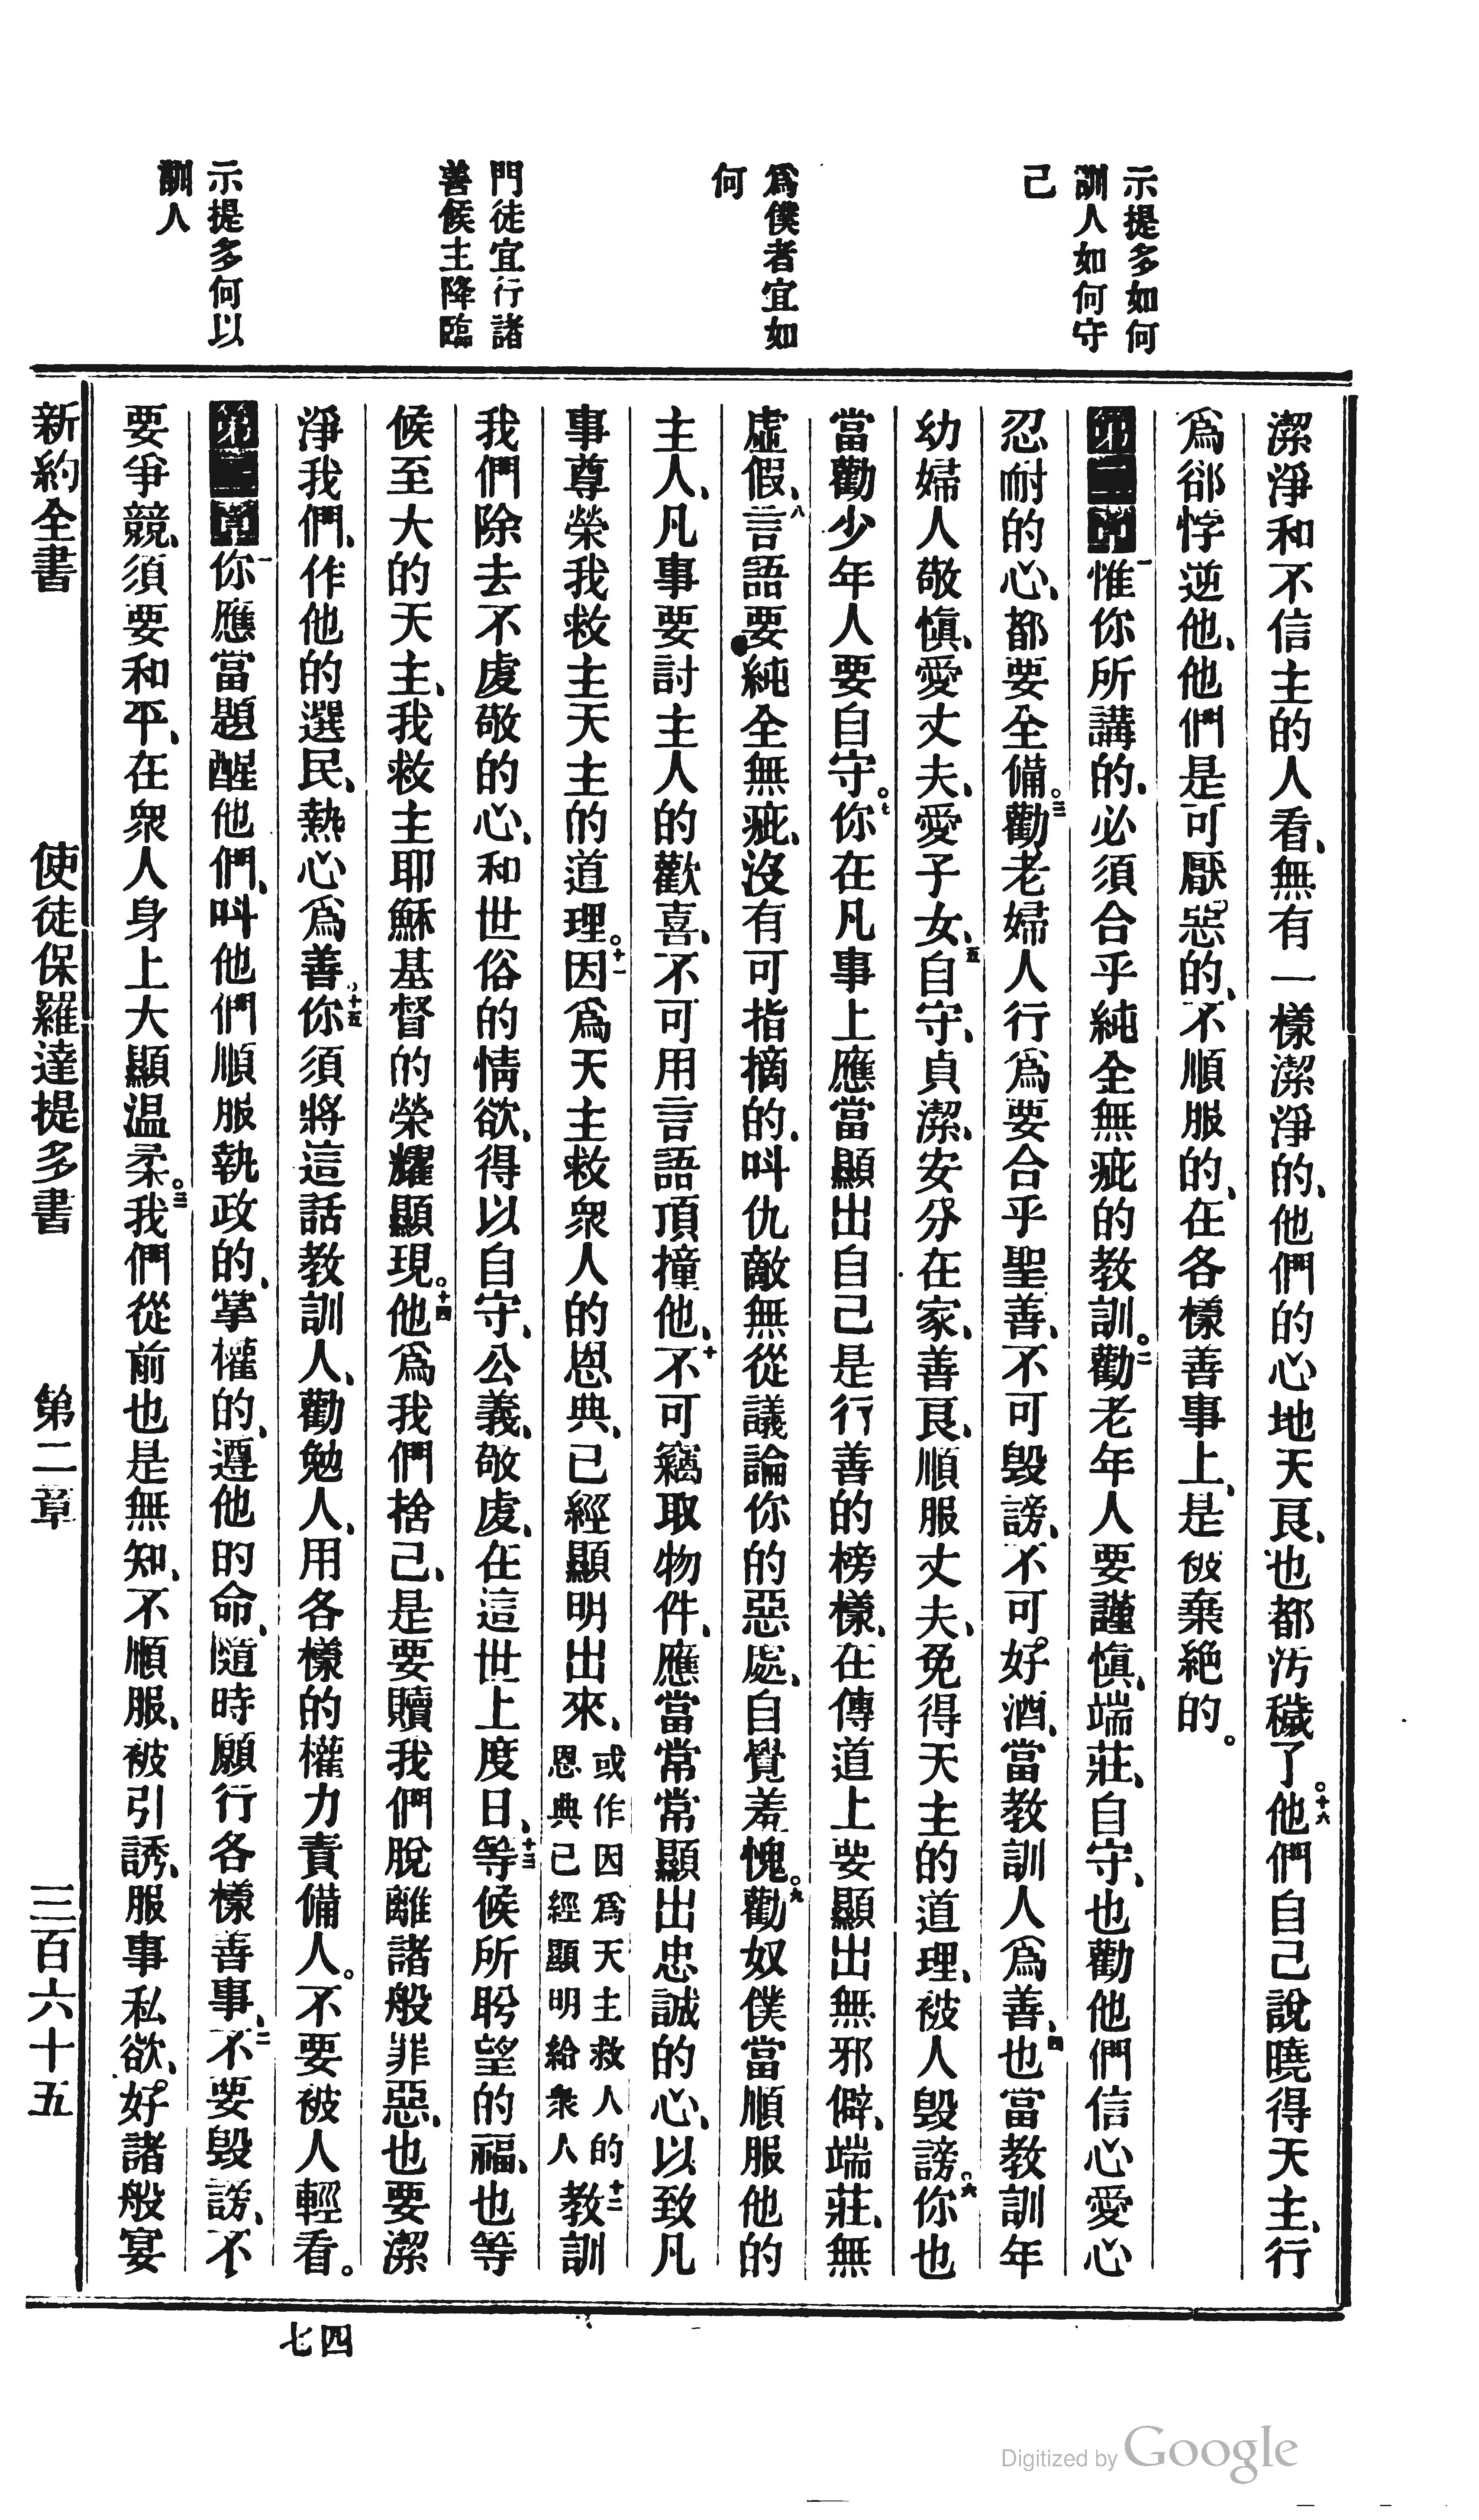 示提多如何
訓人如何守
己
為僕者宜如
何
門徒宜行諸
善候主降臨
示提多何以
訓人
潔淨和不信主的人看、無有一樣潔淨的、他們的心地天良、也都汚穢了。十六他們自己說曉得天主、行
爲卻悖逆他、他們是可厭惡的、不順服的、在各樣善事上、是被棄絶的。
第二章一惟你所講的、必須合乎純全無疵的教訓。二勸老年人要謹愼、端莊、自守、也勸他們信心愛心
忍耐的心、都要全備。三勸老婦人行爲要合乎聖善、不可毀謗、不可好酒、當教訓人爲善、四也當教訓年
幼婦人敬愼、愛丈夫、愛子女、五自守、貞潔、安分在家、善良、順服丈夫、免得天主的道理、被人毀謗。六你也
當勸少年人要自守。七你在凡事上應當顯出自己是行善的榜樣、在傳道上要顯出無邪僻、端莊、無
虛假、八言語要純全無疵、沒有可指摘的、叫仇敵無從議論你的惡處、自覺羞愧。九勸奴僕當順服他的
主人、凡事要討主人的歡喜、不可用言語頂撞他、十不可竊取物件、應當常常顯出忠誠的心、以致凡
事尊榮我救主天主的道理。十一因爲天主救衆人的恩典、已經顯明出來、或作因爲天主救人的恩典已經顯明給衆人十二教訓
我們除去不虔敬的心、和世俗的情欲、得以自守、公義、敬虔、在這世上度日、十三等候所盼望的福、也等
候至大的天主、我救主耶穌基督的榮耀顯現。十四他爲我們捨己、是要贖我們脫離諸般罪惡、也要潔
淨我們、作他的選民、熱心爲善、十五你須將這話教訓人、勸勉人、用各樣的權力責備人。不要被人輕看。
第三章一你應當題醒他們、叫他們順服執政的、掌權的、遵他的命、隨時願行各樣善事、二不要毀謗、不
要爭競、須要和平、在衆人身上大顯温柔。三我們從前也是無知、不順服、被引誘、服事私欲、好諸般宴
新約全書　使徒保羅達提多書　第二章　三百六十五
四七
Digitized by Google